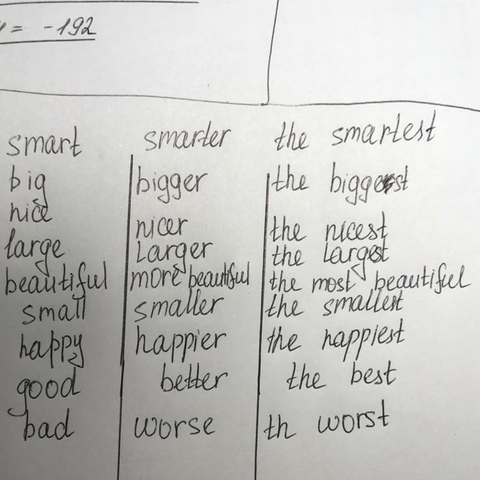 = -192
smart smarter the smartest
big bigger the biggest
nice nicer the nicest
large larger the largest
beautiful more beautiful the most beautiful
small smaller the smallest
happy happier the happiest
good better the best
bad worse th worst